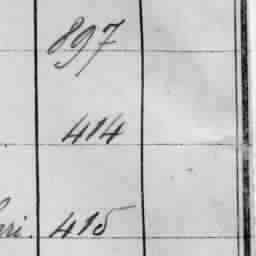 897
414
eri. 415